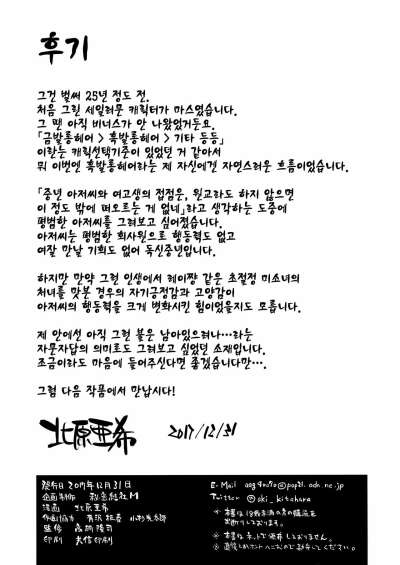 후기
그건 벌써 25년 정도 전.
처음 그린 세일러문 캐릭터가 마스였습니다.
그 땐 아직 비너스가 안 나왔었거든요.
「금발롱헤어 > 흑발롱헤어 > 기타 등등」
이란는 캐릭선택기준이 있었던 거 같아서
뭐 이번엔 흑발롱헤어라는 제 자신에겐 자연스러운 흐름이었습니다.
「중년 아저씨와 여고생의 접점은, 원교라도 하지 않으면
이 정도 밖에 떠오르는 게 없네」라고 생각하는 도중에
평범한 아저씨를 그려보고 싶어졌습니다.
아저씨는 평범한 회사원으로 행동력도 없고
여잘 만날 기회도 없어 독신중년입니다.
하지만 만약 그런 인생에서 레이쨩 같은 초절정 미소녀의
처녀를 맛본 경우의 자기긍정감과 고양감이
아저씨의 행동력을 크게 변화시킨 힘이었을지도 모릅니다.
제 안에선 아직 그런 불은 남아있으려나…라는
자문자답의 의미로도 그려보고 싶었던 소재입니다.
조금이라도 마음에 들어주신다면 좋겠습니다만….
그럼 다음 작품에서 만납시다!
北原亜希 2017/12/31
発行日 2017年12月31日
企画制作 秘密結社M
漫画 北原亜希
印刷
E-Mail
Twitter @aki_kitahara